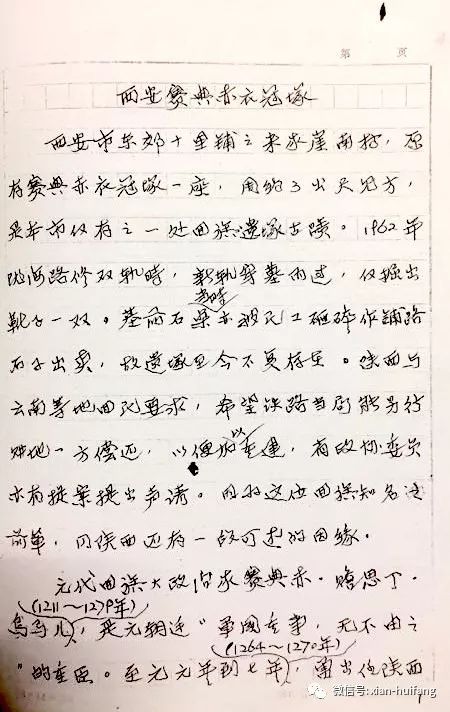 第 页
西安赛典赤衣冠塚
西安市东郊十里铺之米家崖南杨，原
有赛典赤衣冠塚一座，用约3出尺见方，
是本市仅有之一处回族遗塚古陵。1962年
陇海路修双轨時，新轨穿墓而过，仅掘出
靴子一双。墓前石桌当時亦被民工砸碎作铺路
石子出卖，故遗塚至今不复存在。陕西与
云南等地回民要求，希望铁路当局能另行
地一方偿还，以便以后重建，有政协委员
亦有提案提出申请。因为这位回族知名
前辈，同陕西还有一段可述的因缘。
元代回族大政治家赛典赤·赡思丁·
(1211～1279年)
乌马儿，是元朝廷"军国重事，无不由之
(1264～1270年)
"的重臣。至元元年到七年，出任陕西
微信号: xian-huifang